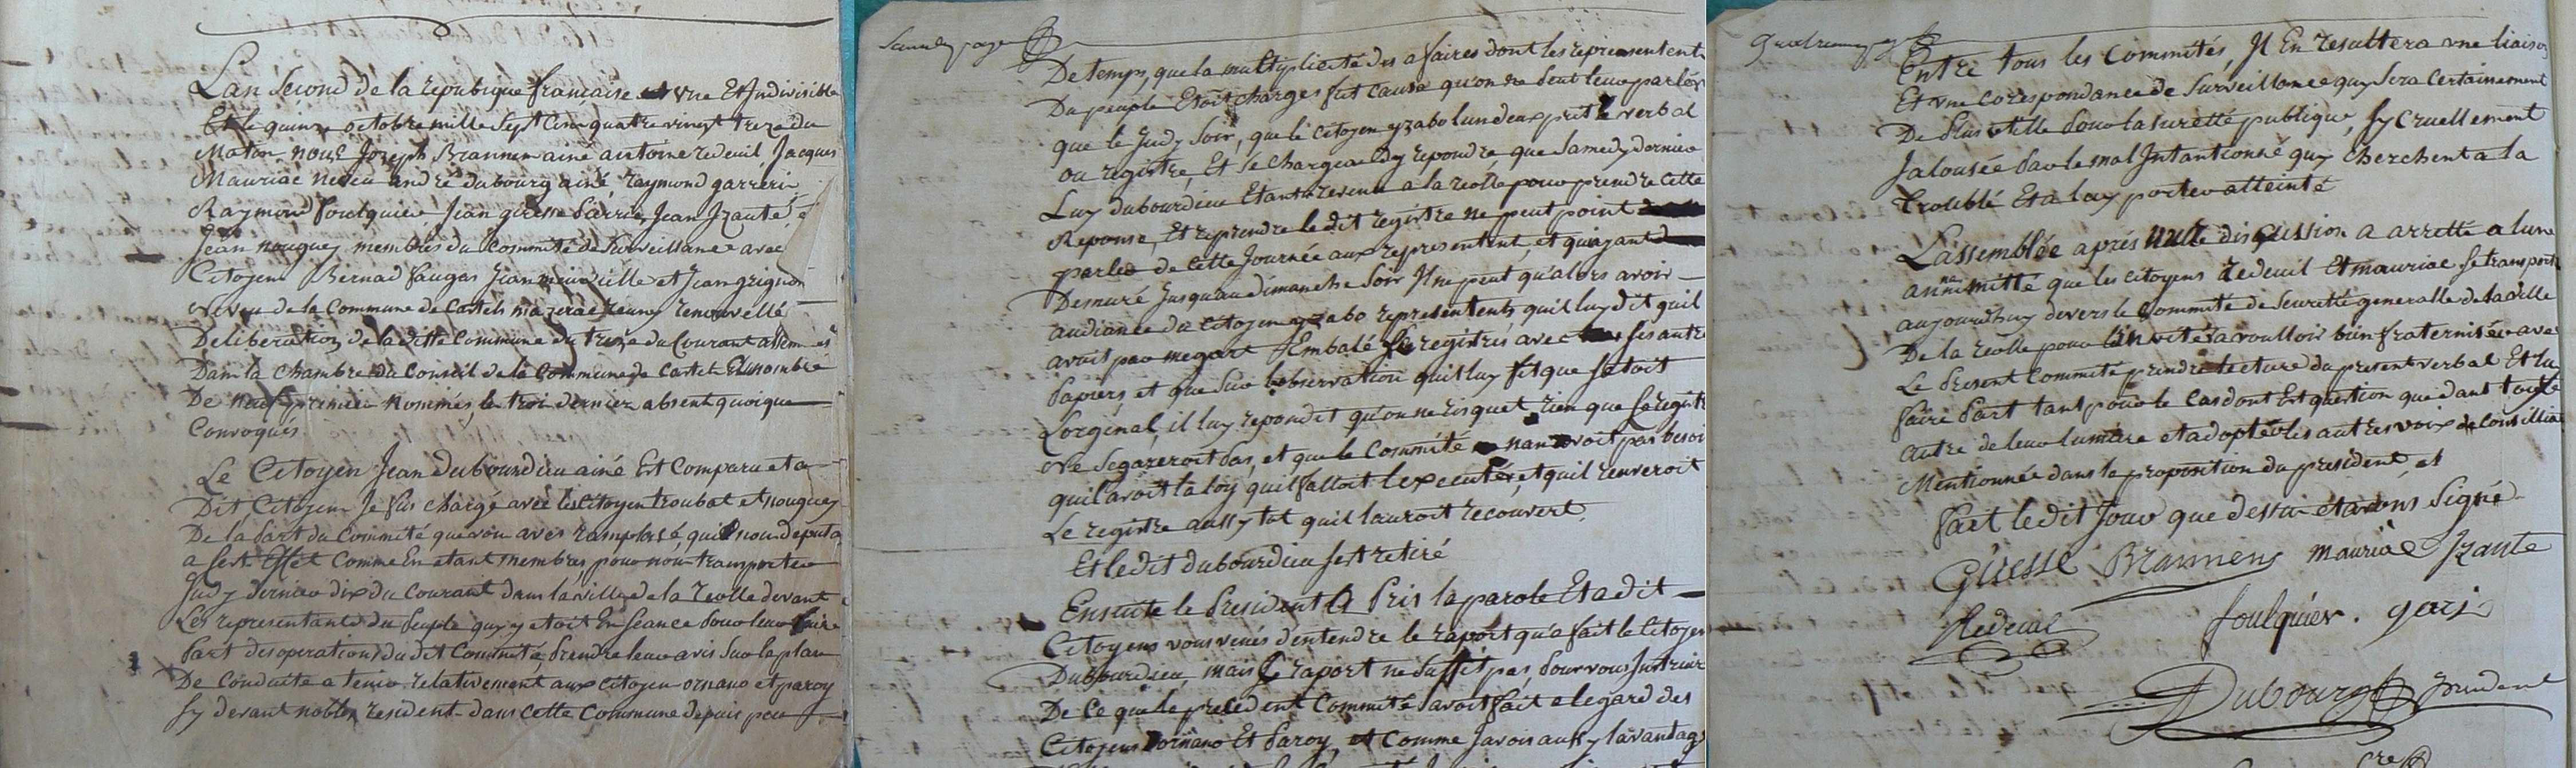 Lan Second de la republique francaise et vne Et Indivisible
Et le quinze octobre mille Sept Cens quatre vingt treze du
Matin nous Joseph Brannens ainé antoine redeuil, Jacques
Mauriac neveu andré dubourg ainé, raymond garreri
Raymond foulquier Jean giresse Jean Izauté, et
Jean nouguey membres du Committé de Surveillance avec
Citoyens Bernad faugas Jean et Jean grignon
Neveu de la Commune de Castets renouvellé
Deliberation de la ditte Commune du treze du Courant assemblés
Dans la chambre du Conseil de la Commune de Castets Au nombre
De neuf premier nommés, le troi dernier absent quoique
Convoqués
Le Citoyen Jean dubourdieu ainé Est Comparu et a
Dit Citoyens Je fus chargé avec les Citoyen troubat et nouguey
De la part du Committé que vou aves ramplassé, qui nou deputa
a set Effet Comme En etant membres pour nou transporter
Judy dernier dix du Courant dans la ville de la reolle devant
Les representants du Peuple quy y etoit En Seance Pour leur faire
Part des operations du dit Committé, Prendre leur avis Sur le plan
De Conduite a tenir relativement aux Citoyen ornano et paroy
Sy devant nobles resident dans cette Commune depuis peu
page
De temps, que la multiplicité des afaires dont les representents
Du peuple Etoit charges fut cause qu'on ne peut leur parler
que le Judy Soir, que le Citoyen yzabo lun deux prit le verbal
ou registre, Et Se chargea dy repondre que Samedy dernier
Luy dubourdieu Etant revenu a la reolle pour prendre Cette
Reponse, Et reprendre le dit registre ne peut point
parler de Cette Journée aux representent, et quayant
Demuré Jusquau dimanche Soir Il ne peut qu'alors avoir
audiance du Citoyen yzabo representents quil luy dit quil
avoit par megart Embalé registres avec ses autre
Papiers, et que Sur lobservation quil luy fit que Setoit
Lorginal, il luy repondit qu'on ne risquet rien que Se registre
Ne Segareroit Pas, et que le Committé nan avoit pas besoin
quil avoit la loy quil falloit lexecuter, et quil renveroit
Le registre aussy tot quil lauroit recouvert.
Et le dit dubourdieu sest retiré
Ensuite le President A Pris la parole Et a dit
Citoyens vous venés dentendre le raport qu'a fait le Citoyen
Dubourdieu, mais Ce raport ne Suffit pas, Pour vous Instruire
De Ce que le precedent Committé avoit fait a legard des
Citoyens Dornano Et Paroy, et Comme Javois aussy lavantage
page
Entre tous les Committés, Il En resultera vne liaison
Et vne Corespondance de Surveillance quy Sera Certainement
De Plus vtille Pour la suretté publique, Sy Cruellement
Jalousée Par le mal Intantionné quy Cherchent a la
troublé Et a luy porter atteinté
Lassemblée aprés discussion a arretté a lune
animitté que les Citoyens redeuil Et mauriac Se transporte
aujourdhuy devers le Committé de Seuretté generalle de la ville
De la reolle pour a voulloir bien fraterniser avec
Le Present Committé prendre lecture du present verbal Et luy
faire Part tant pour le Cas dont Est question que dant toute
autre de leur lumiere et adopter les autres voix
Mentionnée dans la proposition du president et
fait le dit Jour que dessus et avons Signé
Giresse Brannens mauriac Izaute
Redeuil foulquier. garj
Dubourg President